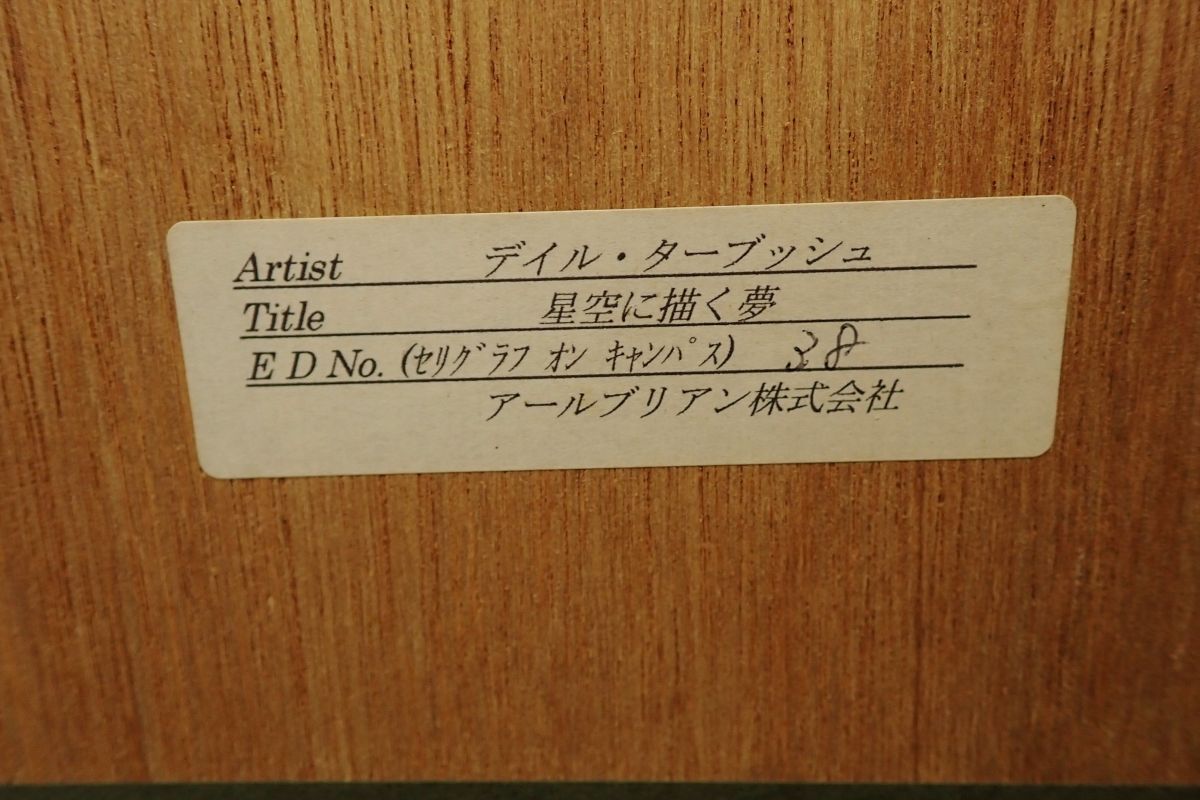 Artist デイル・ターブッシュ
Title 星空に描く夢
E D No. (ｾﾘｸﾞﾗﾌ ｵﾝ ｷｬﾝﾊﾟｽ) 38
アールブリアン株式会社